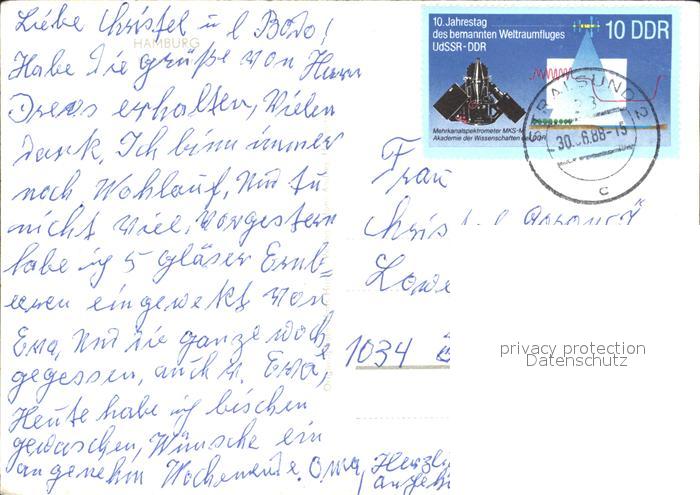 Liebe Christel u l Bodo!
HAMBURG
Habe die grüße von Herrn
Drews erhalten, Vielen
dank, Ich binn immer
noch Wohlauf, Nur tu
nicht viel, Vorgestern
habe ig 5 gläser Erdb=
eeren eingewekt von
Erra, Nur die ganze woche
gegessen, auch v. Erra,
Heute habe ig bischen
gewaschen, Wünsche ein
angenehm Wochenende. Oma, Herzl
10. Jahrestag
des bemannten Weltraumfluges
UdSSR-DDR
10 DDR
Mehrkanalspektrometer MKS-M
Akademie der Wissenschaften der DDR
STRALSUND 2
30.-6.88-15
c
Frau
Christel
1034
privacy protection
Datenschutz